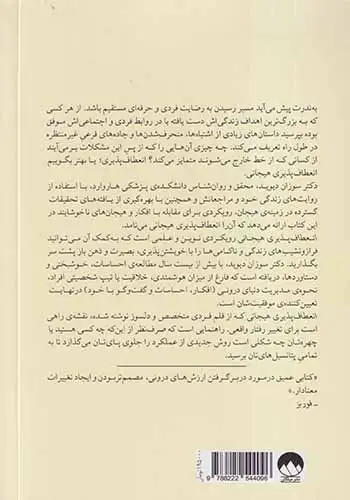 به‌ندرت پیش می‌آید مسیر رسیدن به رضایت فردی و حرفه‌ای مستقیم باشد. از هر کسی
که به بزرگ‌ترین اهداف زندگی‌اش دست یافته یا در روابط فردی و اجتماعی‌اش موفق
بوده بپرسید داستان‌های زیادی از اشتباه‌ها، منحرف‌شدن‌ها و جاده‌های فرعی غیرمنتظره
در طول راه تعریف می‌کند. چه چیزی آن‌هایی را که از پس این مشکلات برمی‌آیند
از کسانی که از خط خارج می‌شوند متمایز می‌کند؟ انعطاف‌پذیری؛ یا بهتر بگوییم
انعطاف‌پذیری هیجانی.
دکتر سوزان دیوید، محقق و روان‌شناس دانشکده‌ی پزشکی هاروارد، با استفاده از
روایت‌های زندگی خود و مراجعانش و همچنین با بهره‌گیری از یافته‌های تحقیقات
گسترده در زمینه‌ی هیجان، رویکردی برای مقابله با افکار و هیجان‌های ناخوشایند در
این کتاب ارائه می‌دهد که آن را انعطاف‌پذیری هیجانی می‌نامد.
انعطاف‌پذیری هیجانی رویکردی نوین و علمی است که به‌کمک آن می‌توانید
فرازونشیب‌های زندگی و ناکامی‌ها را با خویشتن‌پذیری، بصیرت و ذهن باز پشت سر
بگذارید. دکتر سوزان دیوید، با بیش از بیست سال مطالعه‌ی احساسات، خوشبختی و
دستاوردها، دریافته است که فارغ از میزان هوشمندی، خلاقیت یا تیپ شخصیتی افراد،
نحوه‌ی مدیریت دنیای درونی (افکار، احساسات و گفت‌وگو با خود) درنهایت
تعیین‌کننده‌ی موفقیت‌شان است.
انعطاف‌پذیری هیجانی که از قلم فردی متخصص و دلسوز نوشته شده، نقشه‌ی راهی
است برای تغییر رفتار واقعی. راهنمایی است که صرف‌نظر از این‌که چه کسی هستید یا
چهره‌تان چه شکلی است روش جدیدی از عملکرد را جلوی پای‌تان می‌گذارد تا به
تمامی پتانسیل‌های‌تان برسید.
«کتابی عمیق درمورد دربرگرفتن ارزش‌های درونی، مصمم‌تربودن و ایجاد تغییرات
معنادار.»
ـ فوربز
9 788222 544096